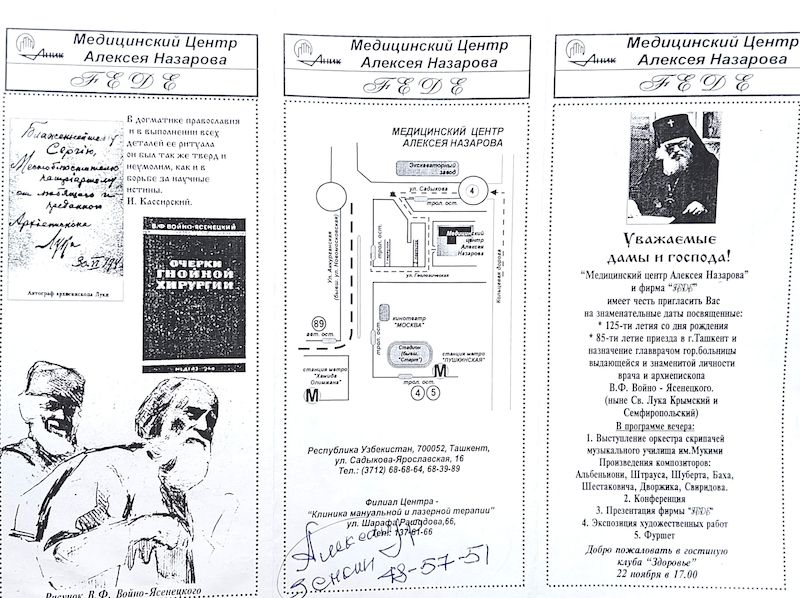 Аник
Медицинский Центр
Алексея Назарова
FEDE
Блаженнейшему
Сергию,
Местоблюстителю
патриаршему
от любящего и
преданного
Архиепископа
Лука
Автограф архиепископа Луки
В догматике православия
и в выполнении всех
деталей ее ритуала
он был так же тверд и
неумолим, как и в
борьбе за научные
истины.
И. Кассирский.
В.Ф ВОЙНО-ЯСЕНЕЦКИЙ
ОЧЕРКИ
ГНОЙНОЙ
ХИРУРГИИ
МЕДГИЗ
Рисунок В.Ф. Войно-Ясенецкого
Аник
Медицинский Центр
Алексея Назарова
FEDE
МЕДИЦИНСКИЙ ЦЕНТР
АЛЕКСЕЯ НАЗАРОВА
Экскаваторный
завод
ул. Садыкова
4
трол. ост.
Медицинский
центр
Алексея
Назарова
трол. ост.
Кольцевая дорога
(бывш. ул. Новомосковская)
кинотеатр
"МОСКВА"
89
авт. ост.
трол. ост.
Стадион
(бывш.
"Старт")
станция метро
"ПУШКИНСКАЯ"
М
станция метро
"Хамида
Олимжана"
М
трол. ост.
4 5
Республика Узбекистан, 700052, Ташкент,
ул. Садыкова-Ярославская, 16
Тел.: (3712) 68-68-64, 68-39-89
Филиал Центра -
"Клиника мануальной и лазерной терапии"
ул. Шарафа Рашидова,66,
Тел.: 137-61-66
Александр
48-57-51
Аник
Медицинский Центр
Алексея Назарова
FEDE
Уважаемые
дамы и господа!
"Медицинский центр Алексея Назарова"
и фирма "FEDE"
имеет честь пригласить Вас
на знаменательные даты посвященные:
* 125-ти летия со дня рождения
* 85-ти летие приезда в г.Ташкент и
назначение главврачом гор.больницы
выдающейся и знаменитой личности
врача и архиепископа
В.Ф. Войно - Ясенецкого.
(ныне Св. Лука Крымский и
Семфиропольский)
В программе вечера:
1. Выступление оркестра скрипачей
музыкального училища им.Мукими
Произведения композиторов:
Альбеньони, Штрауса, Шуберта, Баха,
Шестаковича, Дворжика, Свиридова.
2. Конференция
3. Презентация фирмы "FEDE"
4. Экспозиция художественных работ
5. Фуршет
Добро пожаловать в гостиную
клуба "Здоровье"
22 ноября в 17.00